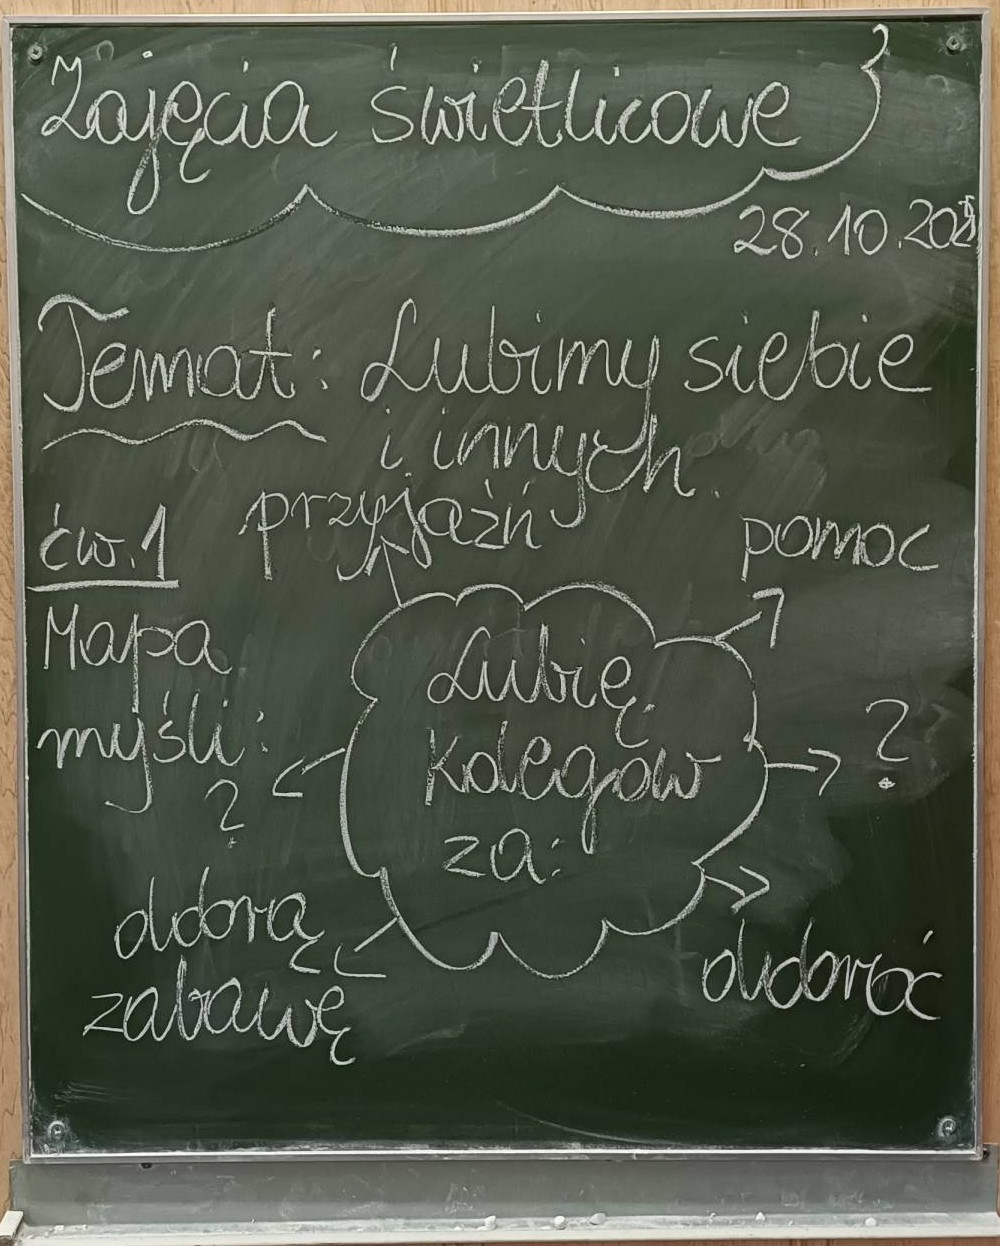 Zajęcia świetlicowe
28.10.2025
Temat: Lubimy siebie
i innych.
przyjaźń
pomoc
ćw. 1
Mapa
myśli:
Lubię
kolegów
za:
?
?
dobrą
zabawę
dobroć